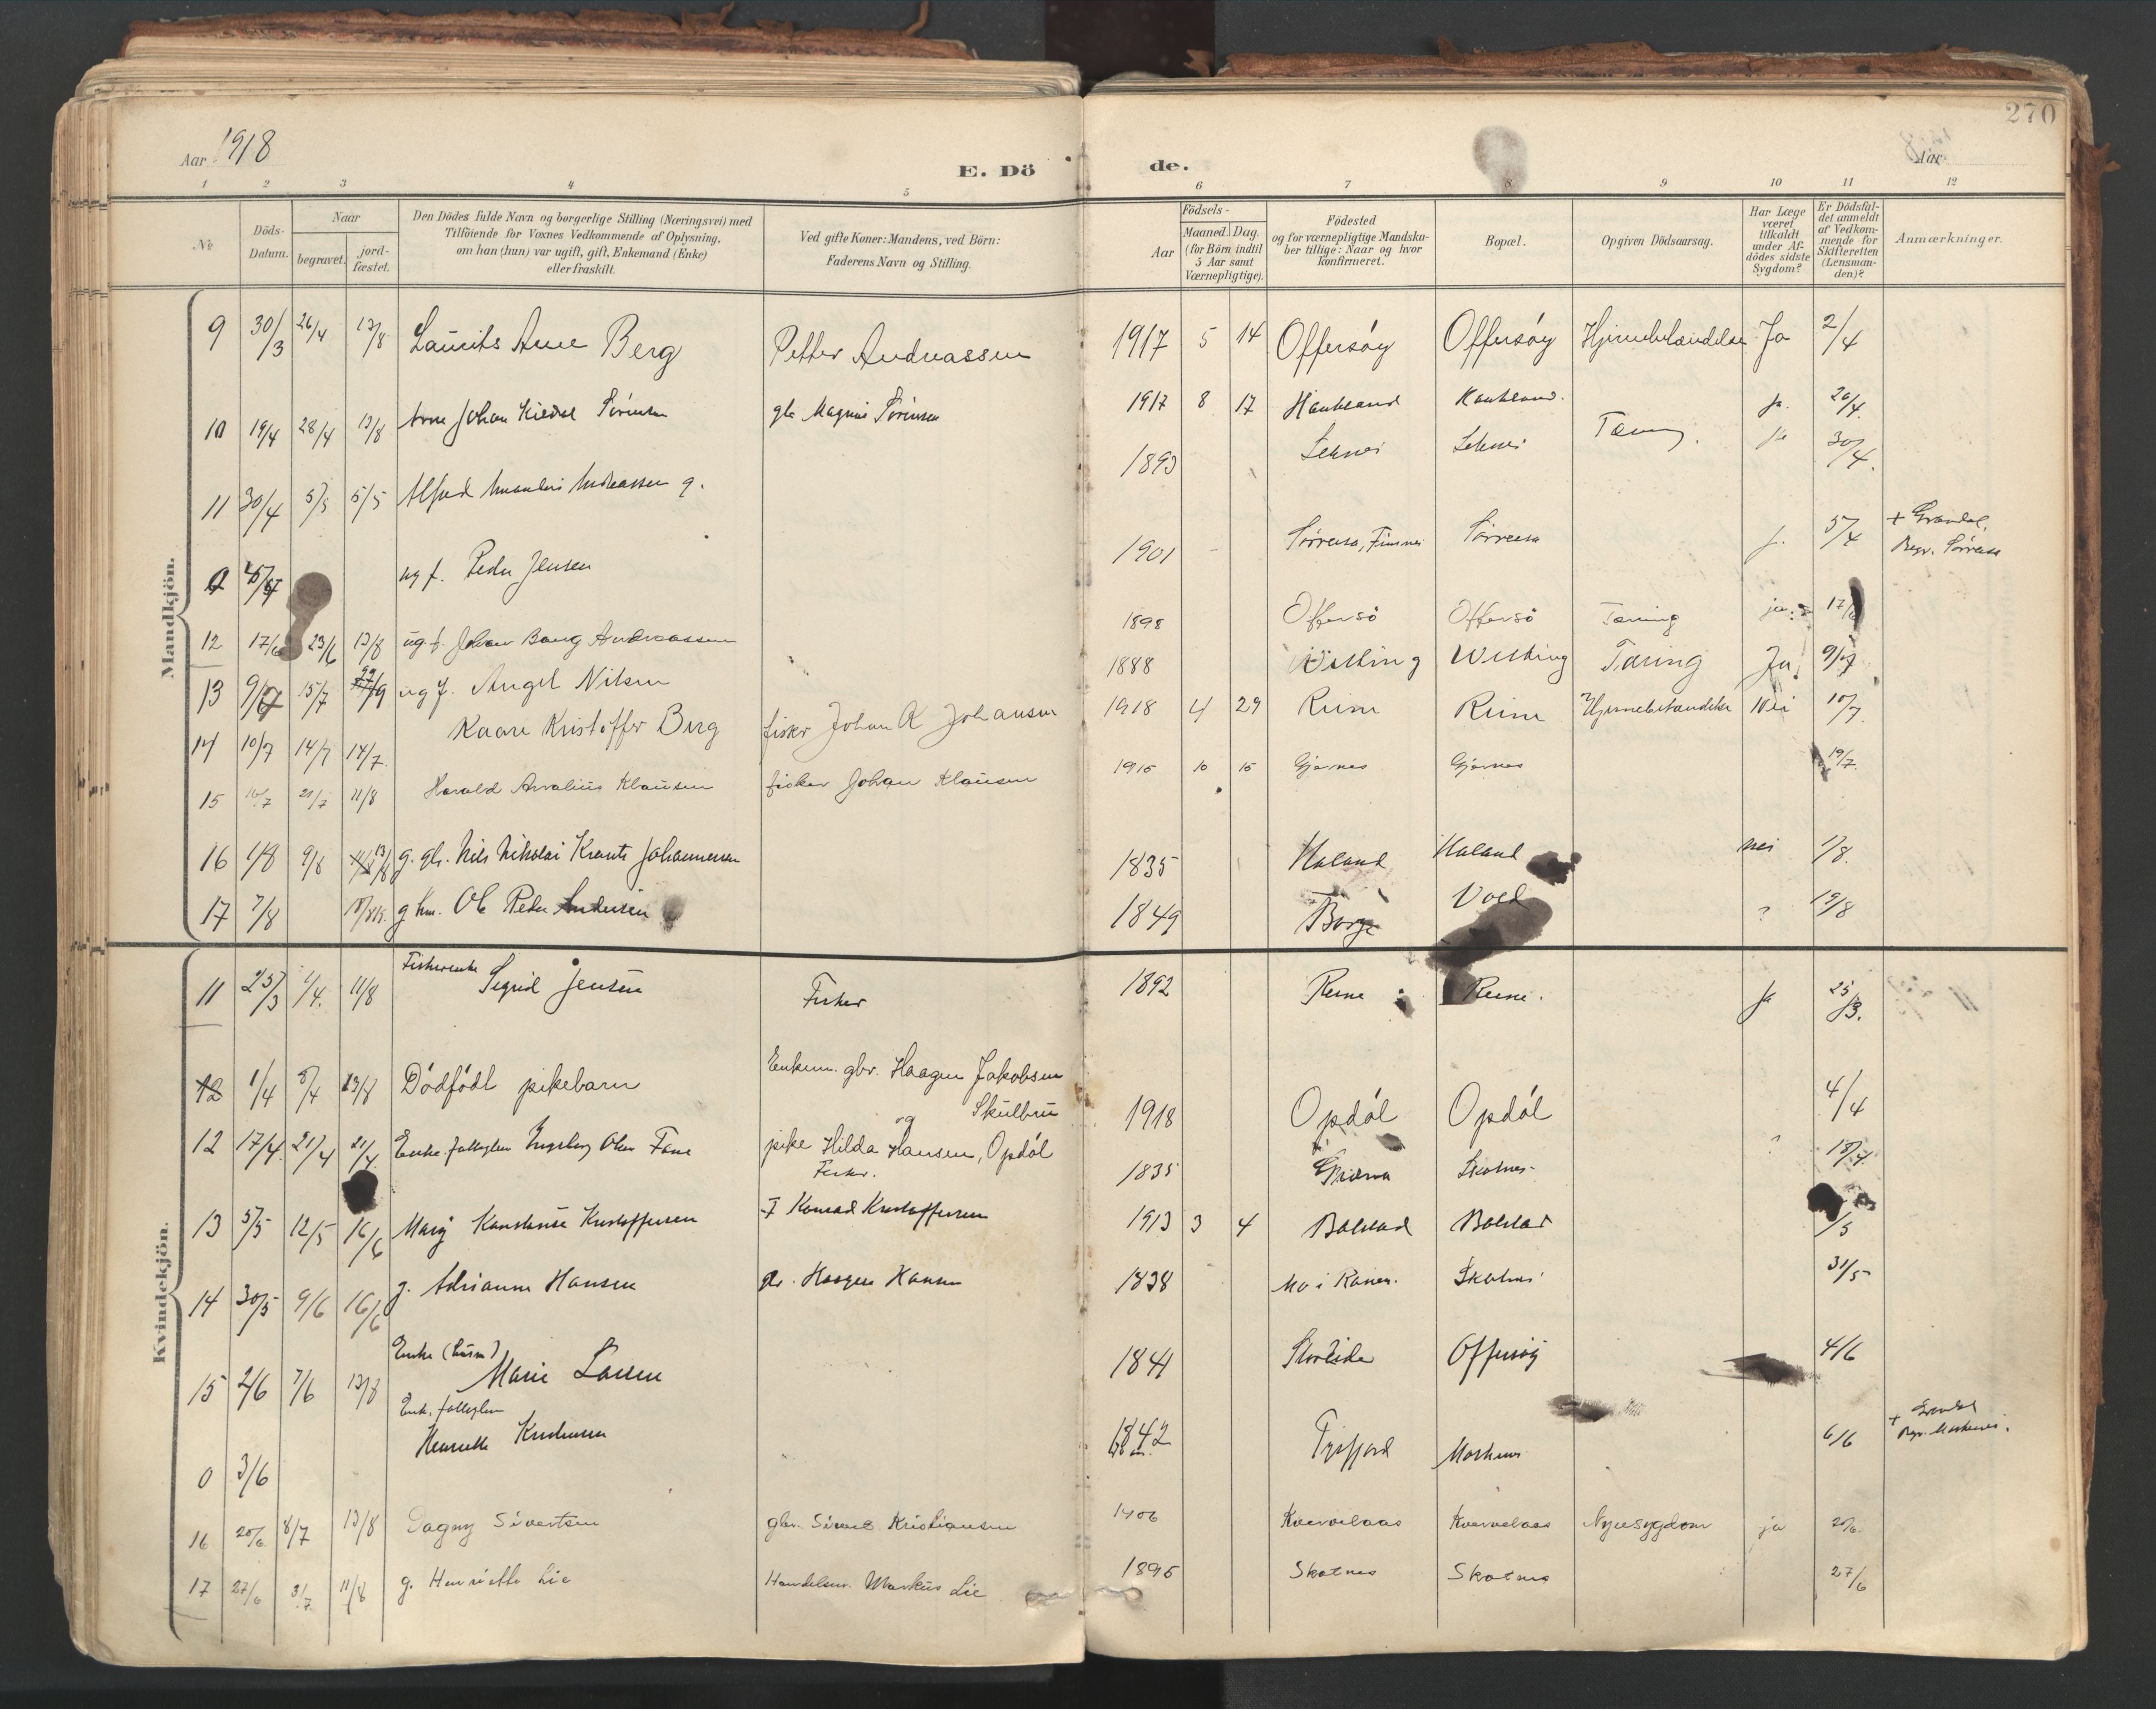 270
Aar 1918
E. Dö de.
Aar
1 2 3 4 5 6 7 8 9 10 11 12
№
Döds-Datum.
Naar
begravet.
jord-fæstet.
Den Dödes fulde Navn og borgerlige Stilling (Næringsvei) med
Tilföiende for Voxnes Vedkommende af Oplysning,
om han (hun) var ugift, gift, Enkemand (Enke)
eller fraskilt.
Ved gifte Koner: Mandens, ved Börn:
Faderens Navn og Stilling.
Födsels-
Aar
Maaned.
Dag.
(for Börn indtil
5 Aar samt
Værnepligtige).
Födested
og for værnepligtige Mandska-
ber tillige: Naar og hvor
konfirmeret.
Bopæl.
Opgiven Dödsaarsag.
Har Læge
været
tilkaldt
under Af-
dödes sidste
Sygdom?
Er Dödsfal-
det anmeldt
af Vedkom-
mende for
Skifteretten
(Lensman-
den)?
Anmærkninger.
Mandkjön.
9 30/3 26/4 13/8 Laurits Arne Berg Petter Andreassen 1917 5 14 Offersøy Offersøy Hjernebetændelse Ja 2/4
10 19/4 28/4 13/8 Arne Johan Sørensen gbr Magnus Sørensen 1917 8 17 Haukland Haukland. ja. 20/4.
11 30/4 5/5 5/5 Alfred Andreassen g. 1893 Leknes Leknes Tæring. ja 30/4.
ug f. Peder Jensen 1901 Sørreisa, Finnes Sørreisa j. 5/4 + Gravdal, Begr. Sørreisa
12 17/6 23/6 13/8 ug f. Johan Bang Andreassen 1898 Offersö Offersö Tæring ja
13 9/7 15/7 ug f. Angel Nilsen 1888 Wetting Wetting Tæring Ja 9/7
14 10/7 14/7 14/7 Kaare Kristoffer Berg fisker Johan A Johansen 1918 4 29 Reine Reine Hjernebetændelse Nei 10/7.
15 21/7 11/8 Harald Klausen fisker Johan Klausen 10 Gjernes Gjernes 19/7.
16 1/8 9/8 13/8 g. gbr. Nils Nikolai Krantz Johannessen 1835 Haland Haland nei 1/8.
17 7/8 g hm. Ole Peder Andersen 1849 Borge Vold ? 19/8
Kvindekjön.
11 25/3 1/4. 11/8 Fiskerenke Sigrid Jensen Fisker 1892 Reine Reine. Ja 25/3.
12 1/4 5/4 13/8 Dödfödt pikebarn Enkem. gbr. Haagen Jakobsen
og Skulbru
pike Hilda Hansen, Opdöl 1918 Opdöl Opdöl 4/4
12 17/4 21/4 21/4. Enke fattiglem Ingeborg Olsen Fisker. 1835 Skotnes ? 18/4.
13 5/5 12/5 16/6 Mary Konstanse Kristoffersen F Konrad Kristoffersen 1913 3 4 Balstad Balstad /5
14 30/5 9/6 16/6 g. Adrianna Hansen gbr. Haagen Hansen 1838 Mo i Ranen. Skotnes 31/5
15 2/6 7/6 13/8 Enke (husm) Marie Larsen 1841 Storeide Offersøy 4/6
0 3/6 Enk. fattiglem Henrette Kristensen 1842 Tysfjord Mortsund 6/6 + Gravdal
16 20/6 8/7 13/8 Dagny Sivertsen gbr. Sivert Kristiansen 1906 Kvervelaas Kvervelaas Nyresygdom ja 20/6.
17 27/6 3/7. 11/8 g. Henriette Lie Handelsm. Markus Lie 1895 Skotnes Skotnes 27/6